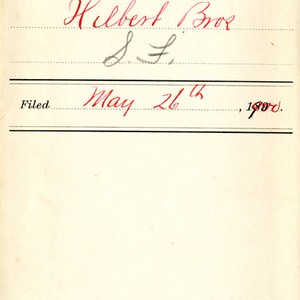 Hilbert Bros
S. F.
Filed May 26th, 1900.